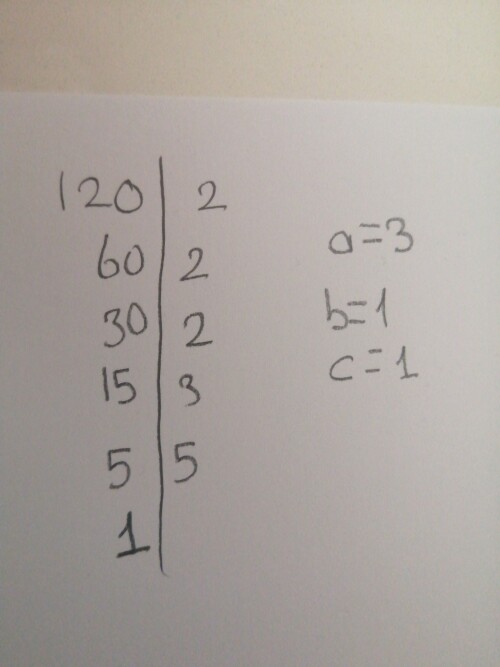 120 | 2
60 | 2
30 | 2
15 | 3
5 | 5
1 |
a=3
b=1
c=1